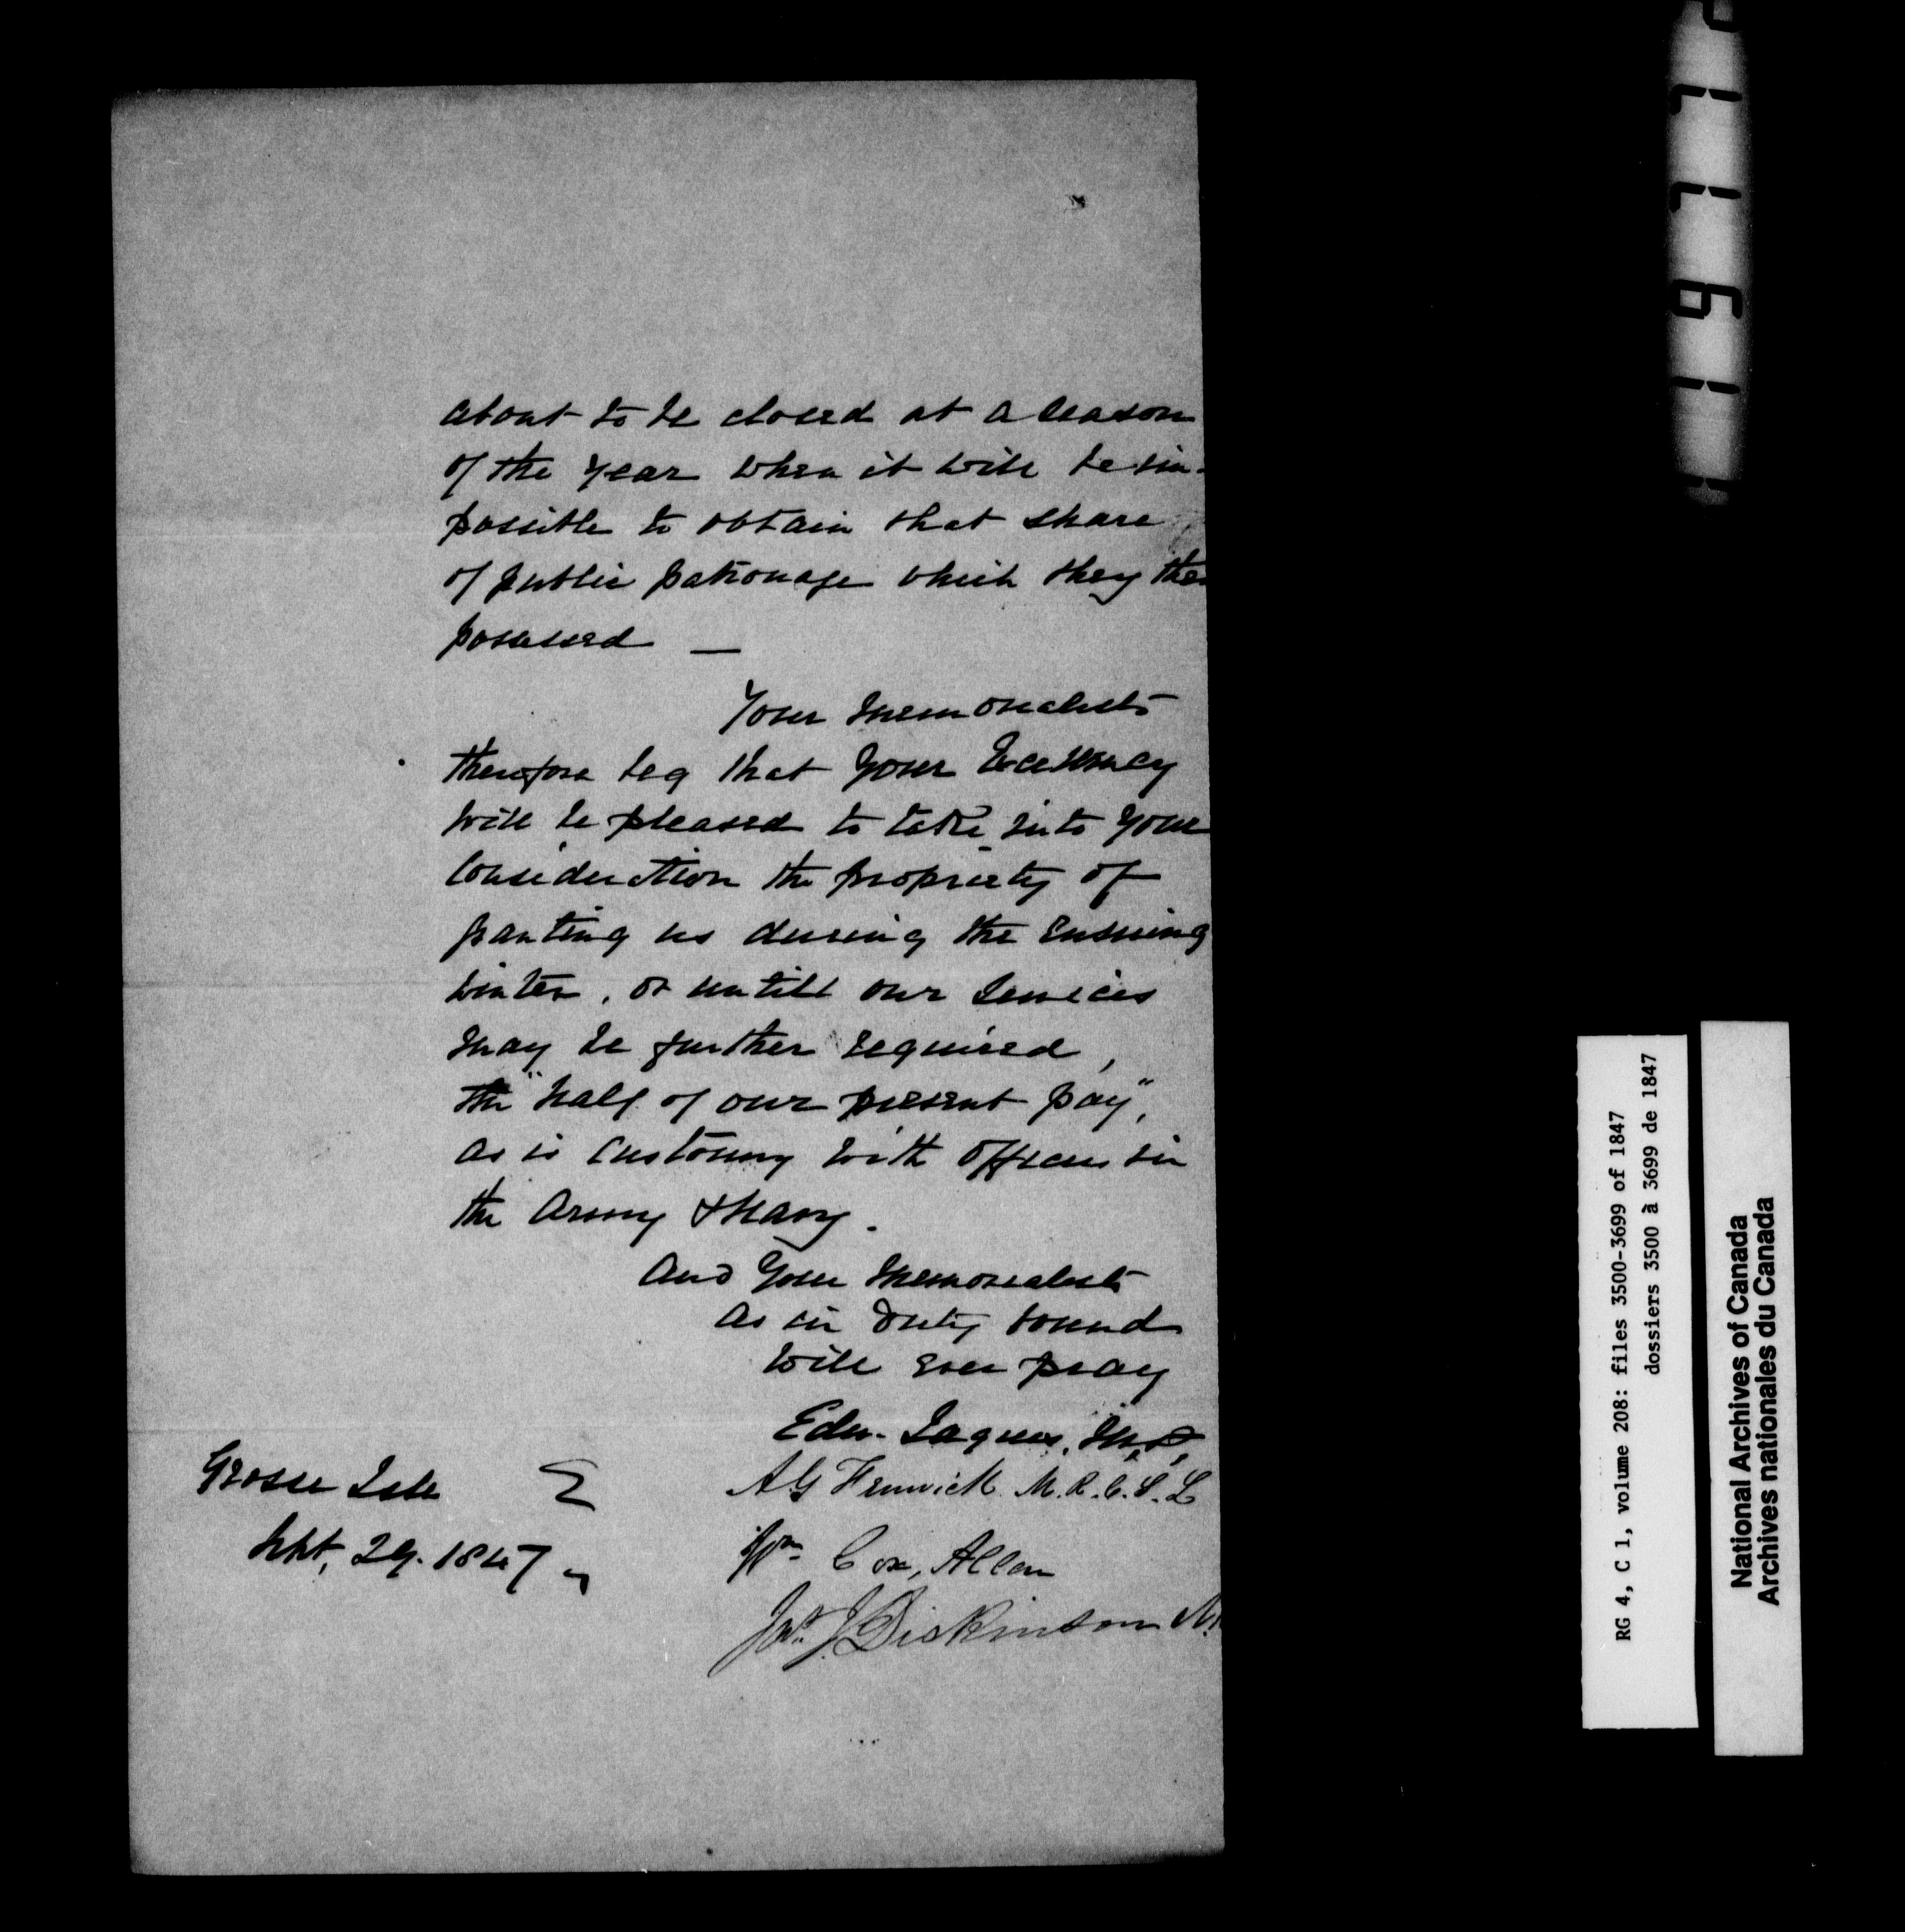 about to be closed at a season
of the year when it will be im-
possible to obtain that share
of public patronage which they then
possessed —
Your Memorialists
therefore beg that Your Excellency
will be pleased to take into your
Consideration the propriety of
granting us during the ensuing
winter, or untill our Services
may be further required,
the "half of our present pay",
as is customy with officers in
the Army & Navy.
And Your Memorialists
As in duty bound
will ever pray
Edw. Jaques, M.D.
A G Fenwick M.R.C.S.L
Grosse Isle
Sept, 29. 1847
Wm Cox, Allen
Jas. J. Dickinson
17791
RG 4, C 1, volume 208: files 3500-3699 of 1847
dossiers 3500 à 3699 de 1847
National Archives of Canada
Archives nationales du Canada